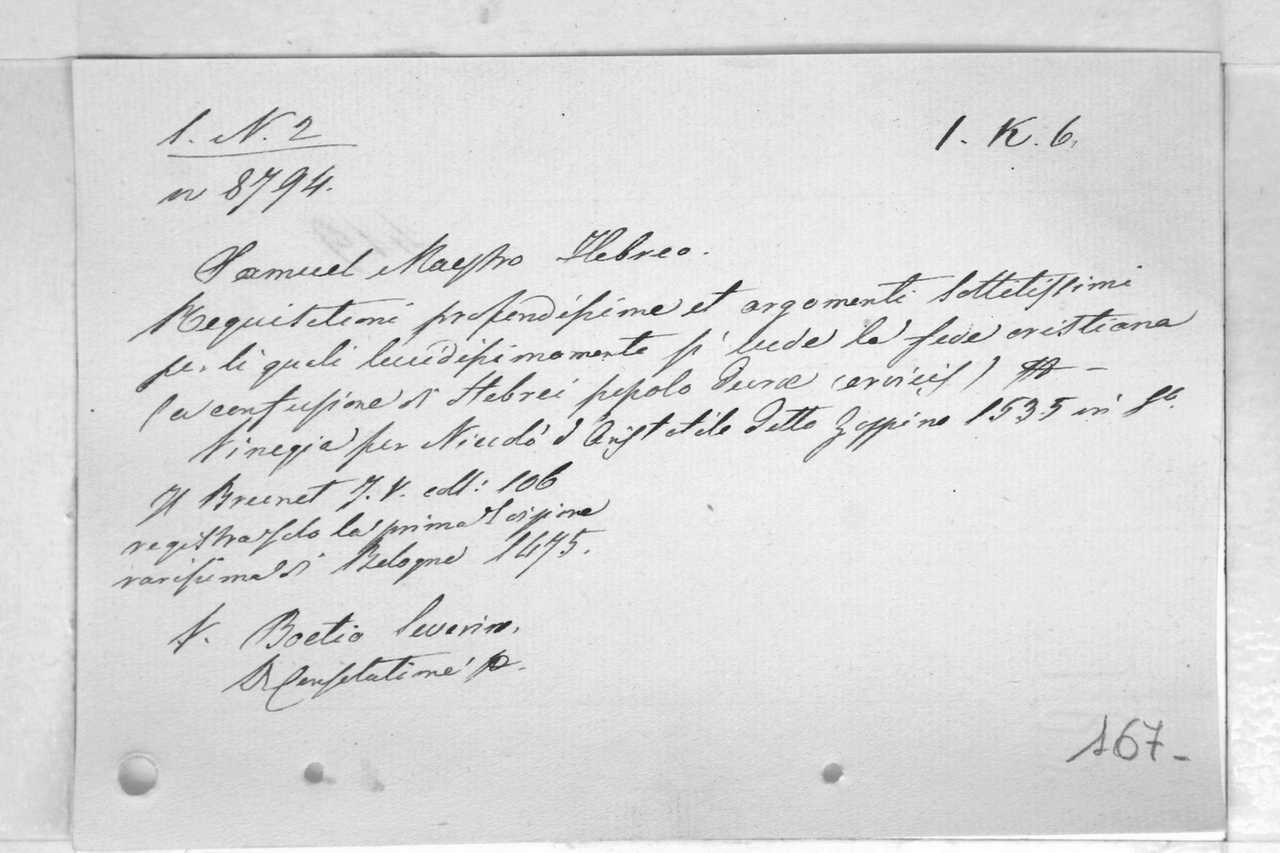 1. N. 2
1. K. 6.
n 8794.
Samuel Maestro Hebreo.
Requisitioni profondissime et argomenti sottilissimi
per li quali lucidissimamente si vede la fede cristiana
(a confusione di Hebrei popolo duræ cervicis)
Vinegia per Nicolò d'Aristotile detto Zoppino 1535 in 8º.
Il Brunet T. V. coll: 106
registra solo la prima edizione
rarissima di Bologna 1475.
V. Boetio Severin.
De Consolatione p.
167-